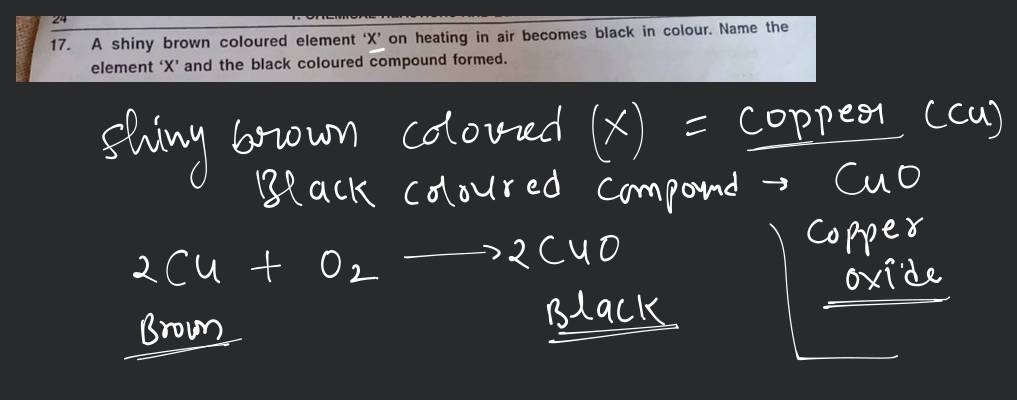 24
17. A shiny brown coloured element 'X' on heating in air becomes black in colour. Name the
element 'X' and the black coloured compound formed.
Shiny brown coloured (X) = copper (Cu)
Black coloured compound → CuO
Copper
oxide
2Cu + O2 → 2CuO
Brown Black